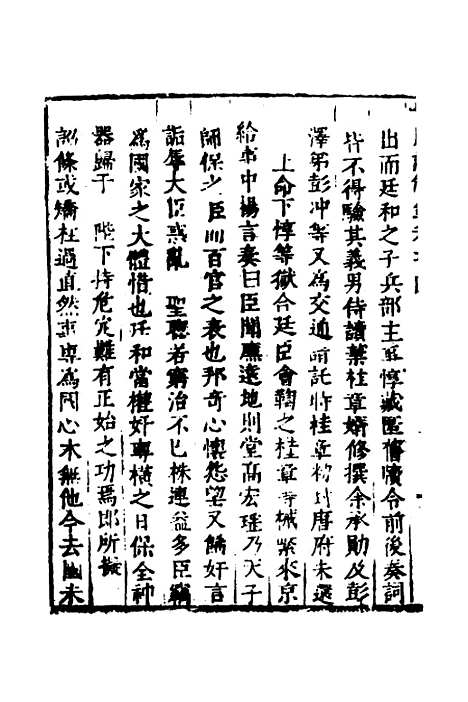 出而廷和之子兵部主事惇藏匿舊牘令前後奏詞
皆不得驗其義男侍讀葉桂章婿修撰余承勛及彭
澤弟彭冲等又為交通請託時桂章粉封唐府未還
上命下惇等獄合廷臣會鞫之桂章等械繫來京
給事中楊言奏曰臣聞廉遠地則堂高宏璫乃天子
師保少臣而百官之表也邦奇心懷怨望又飾奸言
詬辱大臣惑亂 聖聽若窮治不已株連益多臣竊
為國家之大體惜也廷和當權奸專橫之日保全神
器歸于 陛下持危定難有正始之功焉即所擬
詔條或矯枉過直然事專為國心本無他今去國未